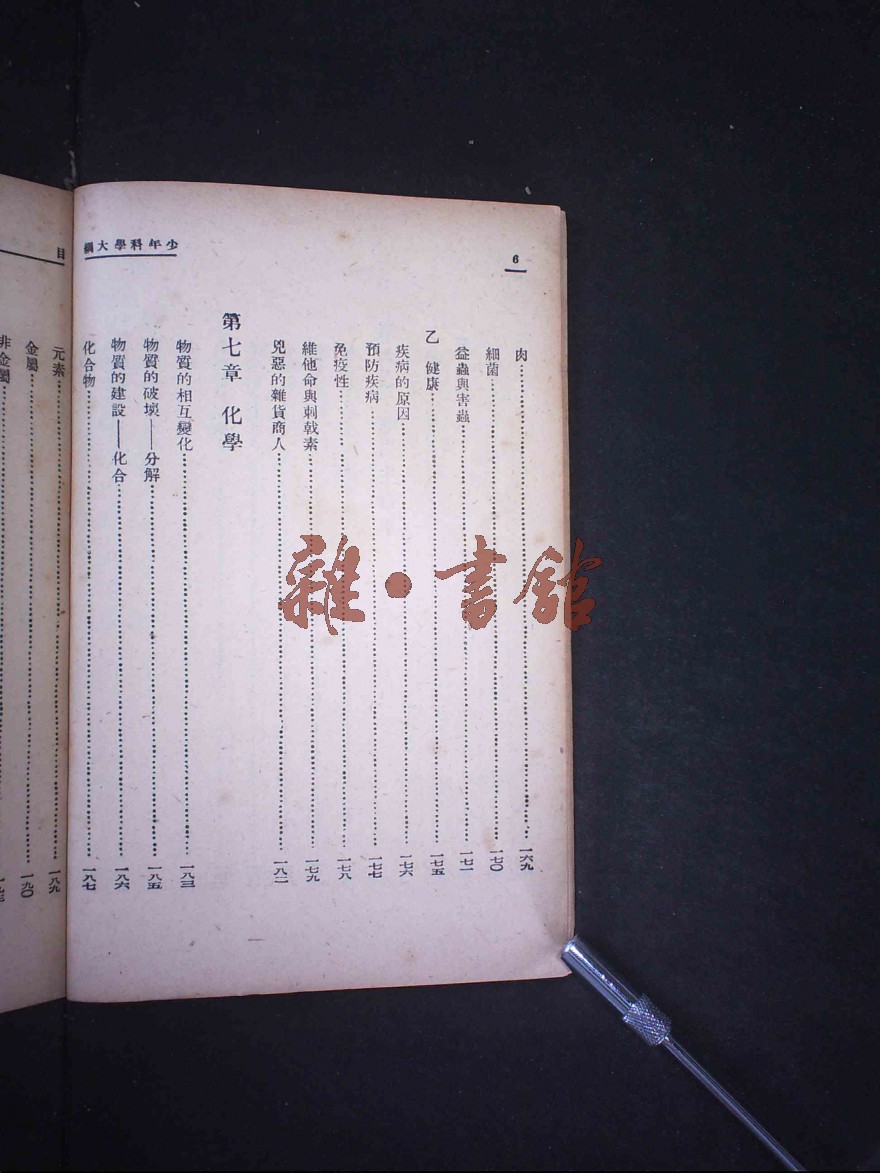 少年科學大綱
6
肉……一六九
細菌……一七〇
益蟲與害蟲……一七一
乙 健康……一七五
疾病的原因……一七六
預防疾病……一七七
免疫性……一七八
維他命與刺戟素……一七九
兇惡的雜貨商人……一八一
第七章 化學
物質的相互變化……一八三
物質的破壞——分解……一八五
物質的建設——化合……一八六
化合物……一八七
目
元素……一八九
金屬……一九〇
非金屬
雜·書館